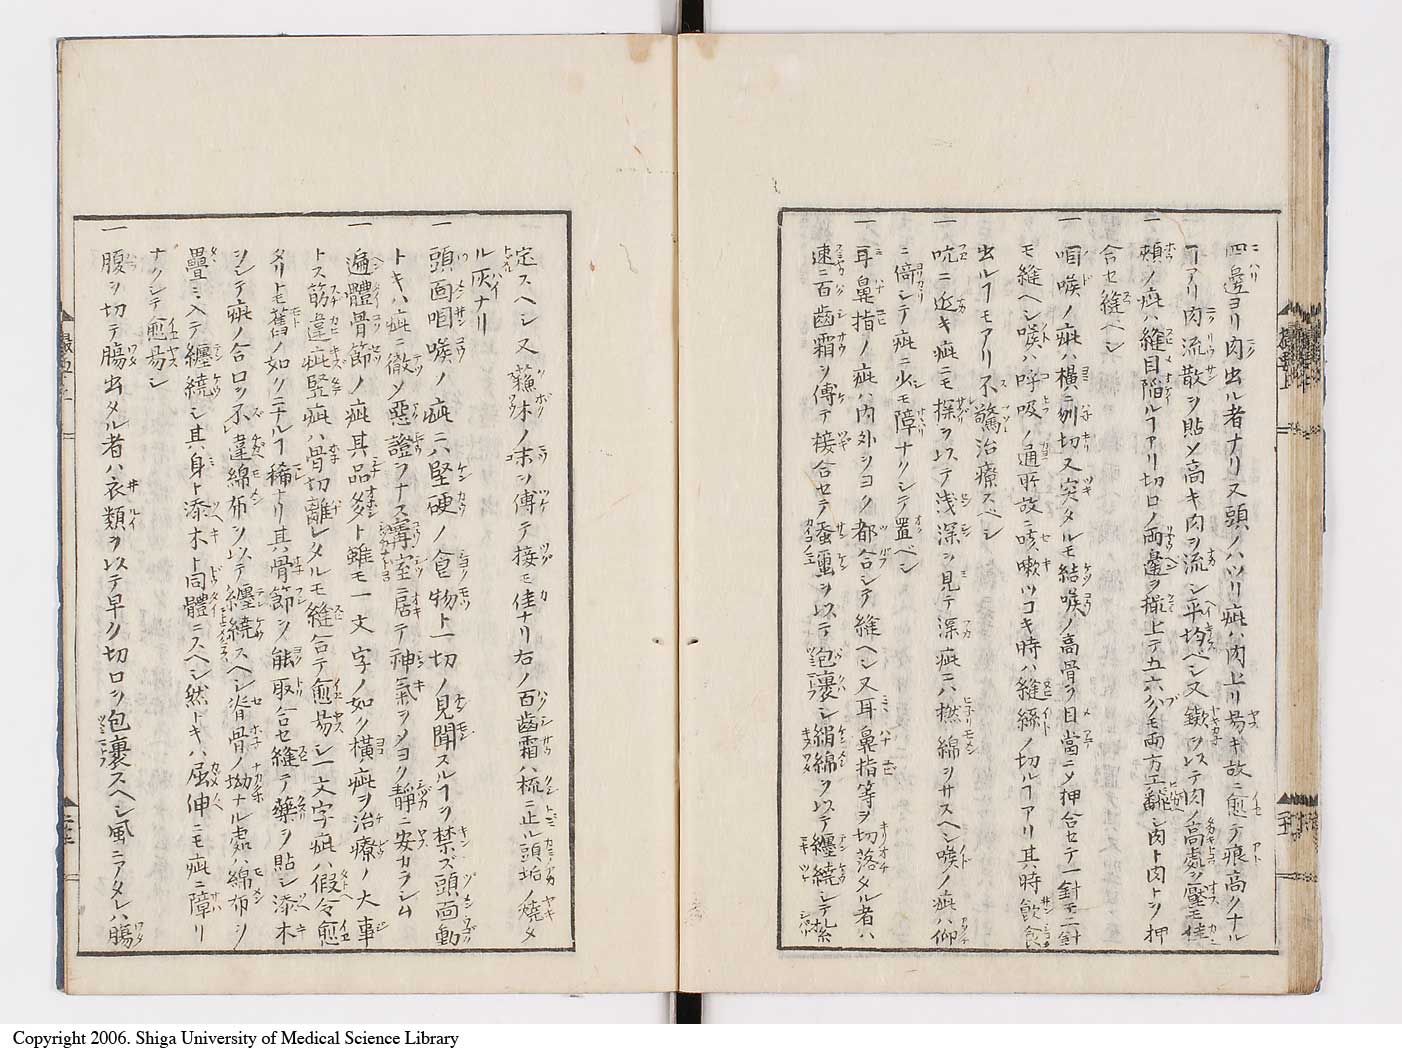 四邊ヨリ肉出ル者ナリ又頭ノハツリ疵ハ肉上リ易キ故ニ愈テ痕高クナル
ヿアリ肉流散ヲ貼メ高キ肉ヲ流シ平均ベシ又鏝ヲ以テ肉ノ高處ヲ壓モ佳
一 頬ノ疵ハ縫目陥ルヿアリ切口ノ両邊ヲ撮上テ五六分モ両方エ翻シ肉ト肉トヲ押
合セ縫ベシ
一 咽喉ノ疵ハ横ニ刎切又突タルモ結喉ノ高骨ヲ目當ニメ押合セテ一針モ二針
モ縫ベシ喉ハ呼吸ノ通所故ニ咳嗽ツヨキ時ハ縫絲ノ切ルヿアリ其時飲食
出ルヿモアリ不驚治療スベシ
一 吭ニ近キ疵ニモ探ヲ以テ浅深ヲ見テ深疵ニハ撚綿ヲサスベシ喉ノ疵ハ仰
ニ倚シテ疵ニ少モ障ナクシテ置ベシ
一 耳鼻指ノ疵ハ内外ヲヨク都合シテ縫ベシ又耳鼻指等ヲ切落タル者ハ
速ニ百齒霜ヲ傅テ接合セテ蚕繭ヲ以テ包裹シ絹綿ヲ以テ纏繞シテ紮
定スベシ又蘇木ノ末ヲ傅テ接モ佳ナリ右ノ百齒霜ハ梳ニ止ル頭垢ノ燒タ
ル灰ナリ
一 頭面咽喉ノ疵ニハ堅硬ノ食物ト一切ノ見聞スルヿヲ禁ズ頭面動
トキハ疵ニ徹メ惡證ヲナス窨室ニ居テ神氣ヲツヨク靜ニ安カラシム
一 遍體骨節ノ疵其品多ト雖モ一文字ノ如ク横疵ヲ治療ノ大事
トス筋違疵竪疵ハ骨切離レタルモ縫合テ愈易シ一文字疵ハ假令愈
タリトモ舊ノ如クニナルヿ稀ナリ其骨節ヲ能取合セ縫テ藥ヲ貼シ添木
ヲシテ疵ノ合口ヲ不違綿布ヲ以テ纏繞スベシ脊骨ノ坳ナル處ハ綿布ヲ
疊ミ入テ纏繞シ其身ト添木ト同體ニスベシ然トキハ屈伸ニモ疵ニ障リ
ナクシテ愈易シ
一 腹ヲ切テ腸出タル者ハ衣類ヲ以テ早ク切口ヲ包裹スベシ風ニアタレハ腸
Copyright 2006. Shiga University of Medical Science Library